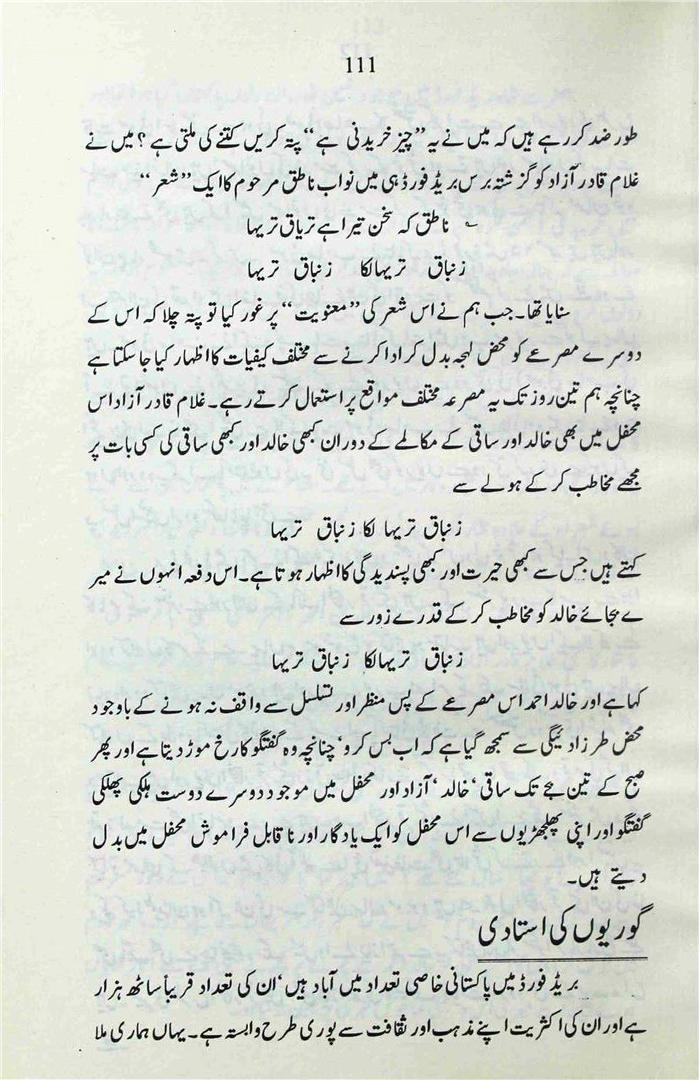 111
طور ضد کر رہے ہیں کہ میں نے یہ ”چیز خریدنی ہے“ پتہ کریں کتنے کی ملتی ہے؟ میں نے
غلام قادر آزاد کو گزشتہ برس بریڈ فورڈ ہی میں نواب ناطق مرحوم کا ایک ”شعر“
؎ ناطق کہ سخن تیرا ہے تریاق تریہا
زنباق تریہا لکا زنباق تریہا
سنایا تھا۔ جب ہم نے اس شعر کی ”معنویت“ پر غور کیا تو پتہ چلا کہ اس کے
دوسرے مصرعے کو محض لہجہ بدل کر ادا کرنے سے مختلف کیفیات کا اظہار کیا جا سکتا ہے
چنانچہ ہم تین روز تک یہ مصرعہ مختلف مواقع پر استعمال کرتے رہے۔ غلام قادر آزاد اس
محفل میں بھی خالد اور ساقی کے مکالمے کے دوران کبھی خالد اور کبھی ساقی کی کسی بات پر
مجھے مخاطب کر کے ہولے سے
زنباق تریہا لکا زنباق تریہا
کہتے ہیں جس سے کبھی حیرت اور کبھی پسندیدگی کا اظہار ہوتا ہے۔ اس دفعہ انہوں نے میر
ے بجائے خالد کو مخاطب کر کے قدرے زور سے
زنباق تریہا لکا زنباق تریہا
کہا ہے اور خالد احمد اس مصرعے کے پس منظر اور تسلسل سے واقف نہ ہونے کے باوجود
محض طرز ادائیگی سے سمجھ گیا ہے کہ اب بس کرو‘ چنانچہ وہ گفتگو کا رخ موڑ دیتا ہے اور پھر
صبح کے تین بجے تک ساقی‘ خالد‘ آزاد اور محفل میں موجود دوسرے دوست ہلکی پھلکی
گفتگو اور اپنی پھلجھڑیوں سے اس محفل کو ایک یادگار اور ناقابل فراموش محفل میں بدل
دیتے ہیں۔
گوریوں کی استادی
بریڈ فورڈ میں پاکستانی خاصی تعداد میں آباد ہیں‘ ان کی تعداد قریباً ساٹھ ہزار
ہے اور ان کی اکثریت اپنے مذہب اور ثقافت سے پوری طرح وابستہ ہے۔ یہاں ہماری ملا